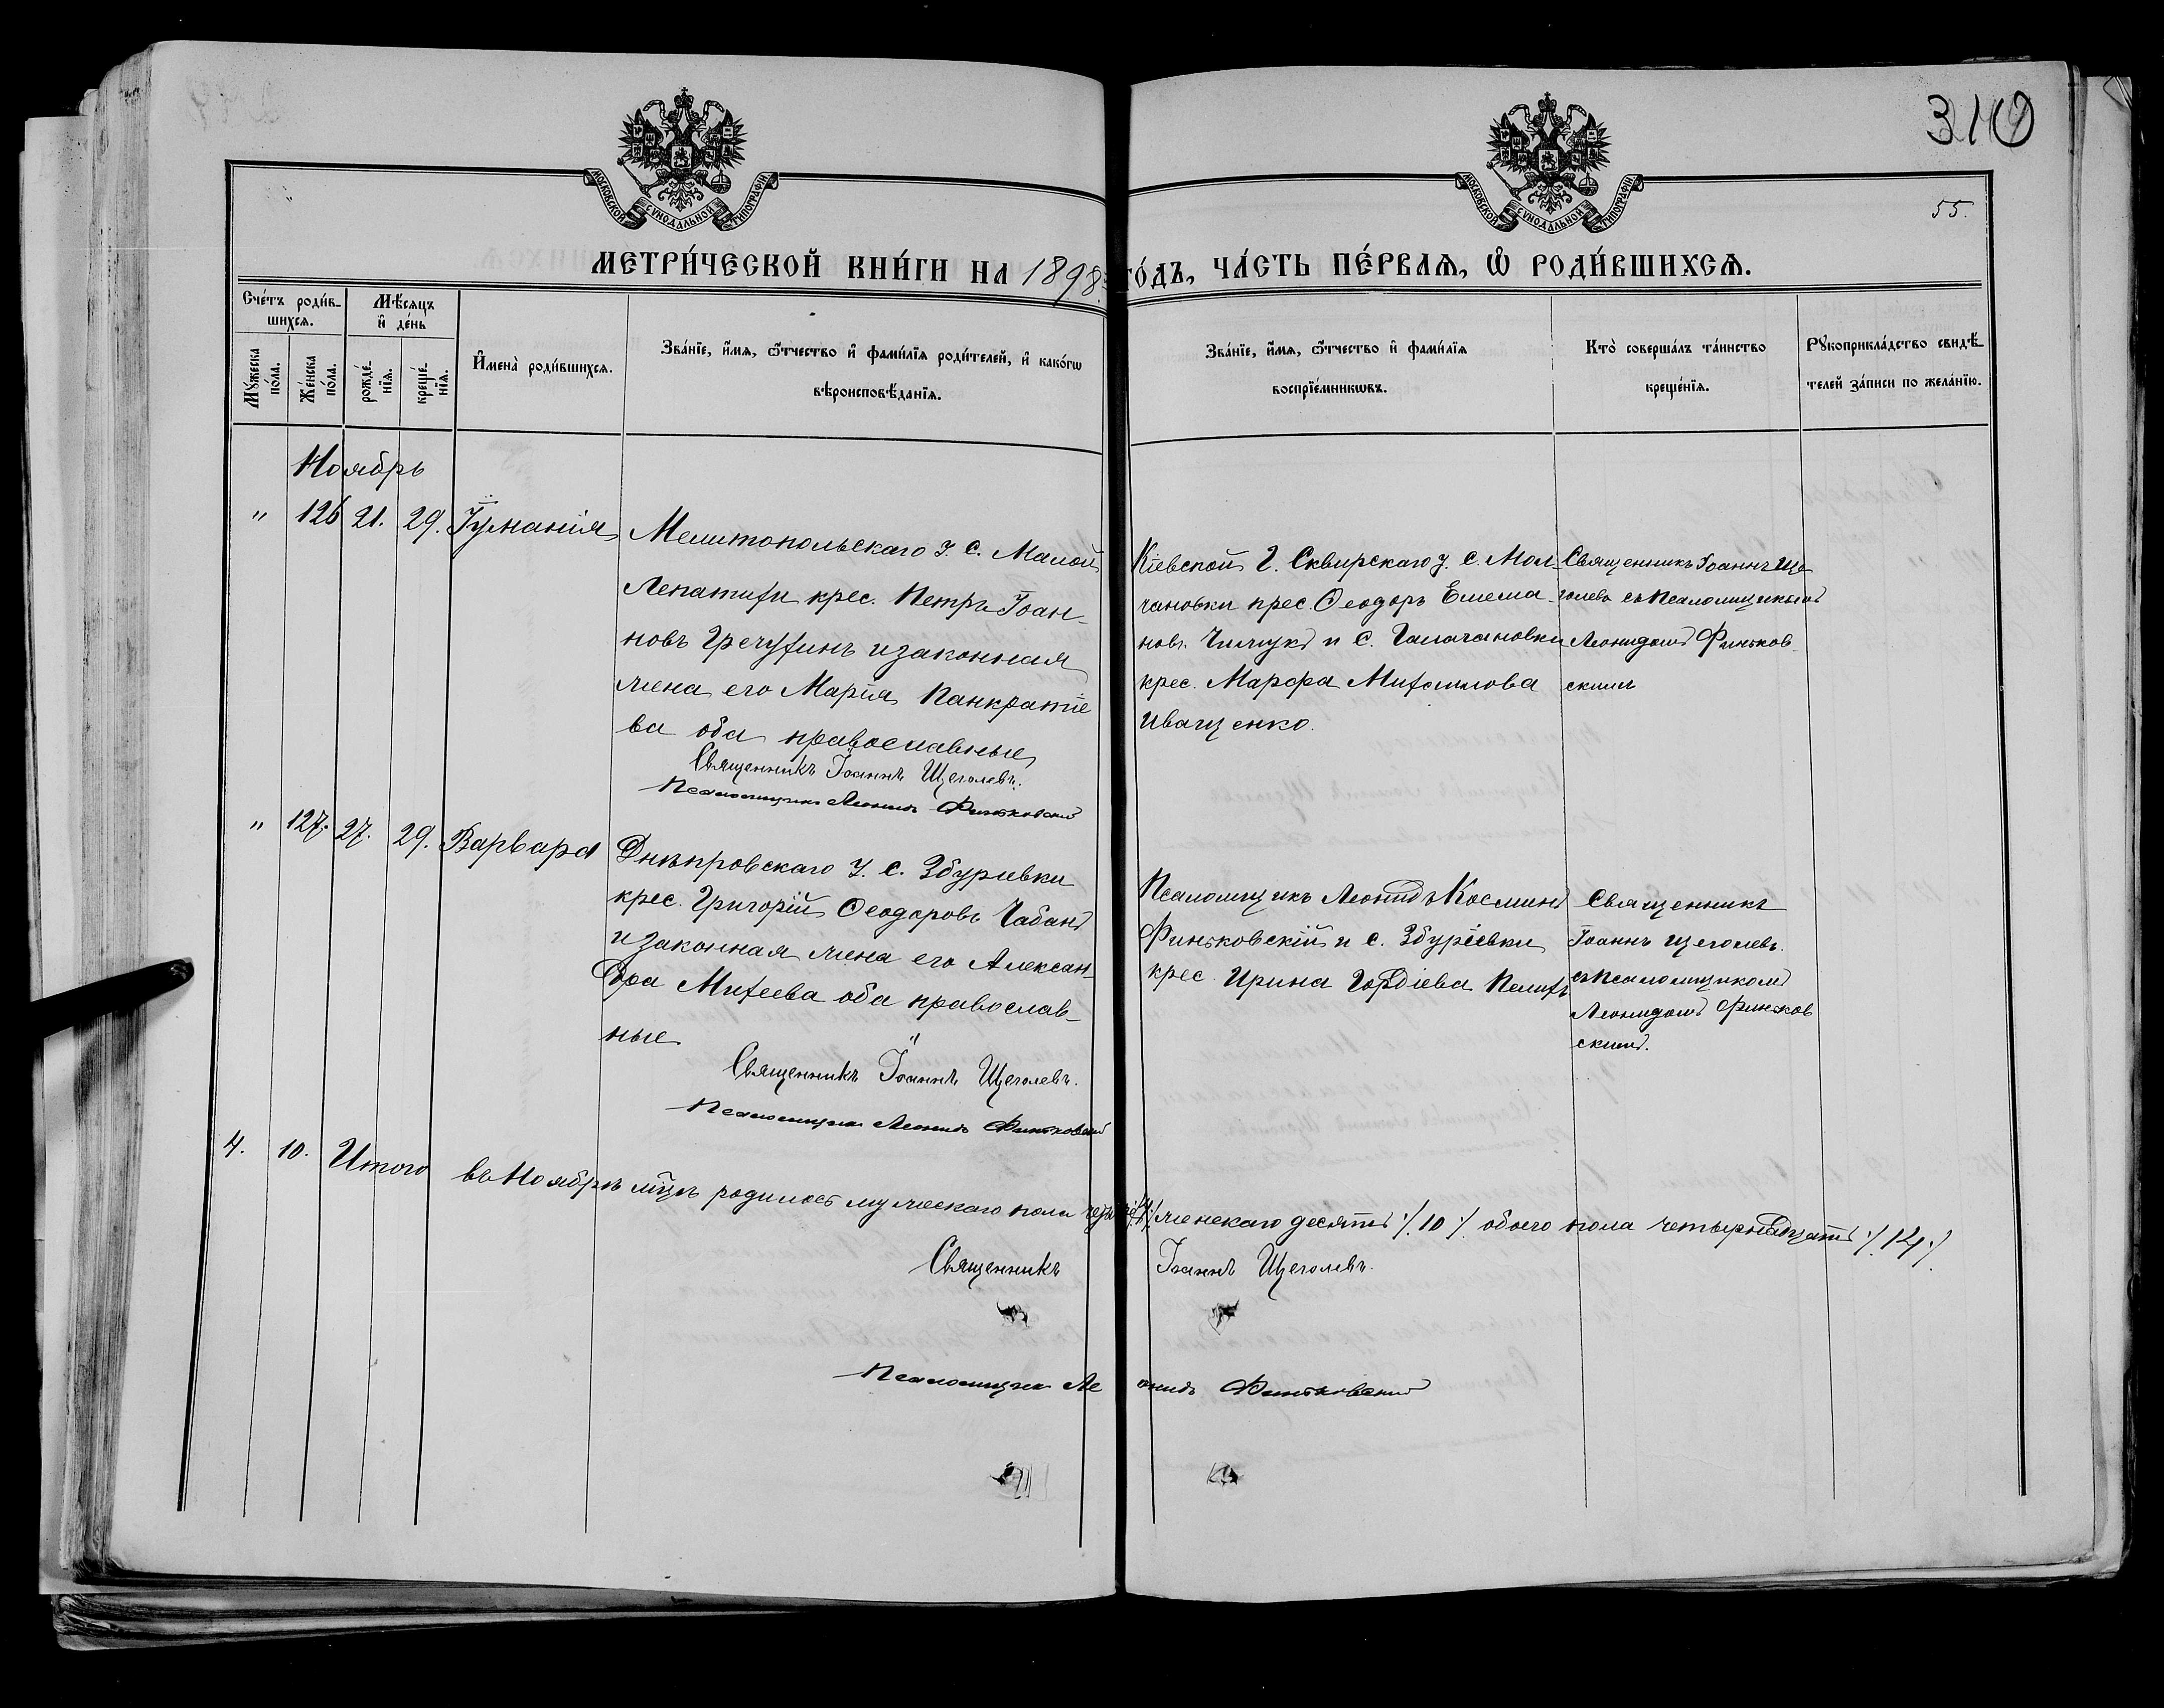 310
55.
МОСКОВСКОЙ СУНОДАЛЬНОЙ ТИПОГРАФІИ
МОСКОВСКОЙ СУНОДАЛЬНОЙ ТИПОГРАФІИ
МЕТРИ́ЧЕСКОЙ КНИ́ГИ НА 1898 ГО́ДЪ, ЧА́СТЬ ПЕ́РВАѦ, Ѡ РОДИ́ВШИХСѦ.
Сче́тъ роди́в-
шихсѧ.
Мѣ́сяцъ
и҆ де́нь
Мꙋ́жеска
по́ла.
Же́нска
по́ла.
рожде́-
нїѧ.
креще́-
нїѧ.
И҆мена̀ роди́вшихсѧ.
Зва́нїе, и҆́мѧ, ѻ҆́тчество и҆ фами́лїѧ роди́телей, и҆ како́гѡ
вѣроисповѣ́данїѧ.
Зва́нїе, и҆́мѧ, ѻ҆́тчество и҆ фами́лїѧ
воспрїе́мникѡвъ.
Кто̀ соверша́лъ та́инство
креще́нїѧ.
Рꙋкоприкла́дство свидѣ́-
телей за́писи по жела́нїю.
Ноябрь
" 126 21. 29. Іуманія
Мелитопольскаго У. С. Малой
Лепатихи крес. Петръ Іоан-
новъ Гречухинъ и законная
жена его Марія Панкратіе
ва оба православные
Священникъ Іоаннъ Щеголевъ.
Псаломщикъ Леонидъ Финьковскій
Кіевской Г. Сквирскаго У. С. Мол-
чановки крес. Ѳеодоръ Емельа-
новъ и С. Галагановки
крес. Марфа Михаилова
Иващенко.
Священникъ Іоаннъ Ще
голевъ съ Псаломщикомъ
Леонидомъ Финьков-
скимъ
" 127. 27. 29. Варвара
Днѣпровскаго У. С. Збурьевки
крес. Григорій Ѳеодоровъ Чабанъ
и законная жена его Алексан-
дра Михеева оба православ-
ные.
Священникъ Іоаннъ Щеголевъ.
Псаломщикъ Леонидъ Финьковскій
Псаломщикъ Леонидъ Косминъ
Финьковскій и с. Збуріевки
крес. Ирина Гордіева Пелихъ
Священникъ
Іоаннъ Щеголевъ
съ Псаломщикомъ
Леонидомъ Финьков
скимъ.
4. 10. Итого въ Ноябрѣ м̃цѣ родилось мужескаго пола четыре /4/ женскаго десять /10/ обоего пола четырнадцать /14/
Священникъ Іоаннъ Щеголевъ.
Псаломщикъ Леонидъ Финьковскій